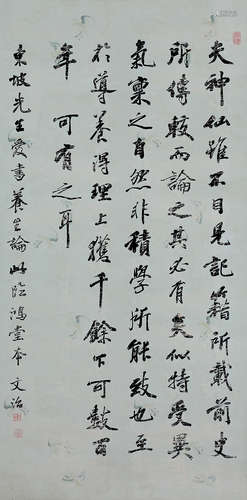 夫神仙雖不目見記籍所載前史
所傳較而論之其必有矣似特受異
氣稟之自然非積學所能致也至
於導養得理上獲千餘下可數百
年可有之耳
東坡先生愛書養生論此臨鴻堂本 文治